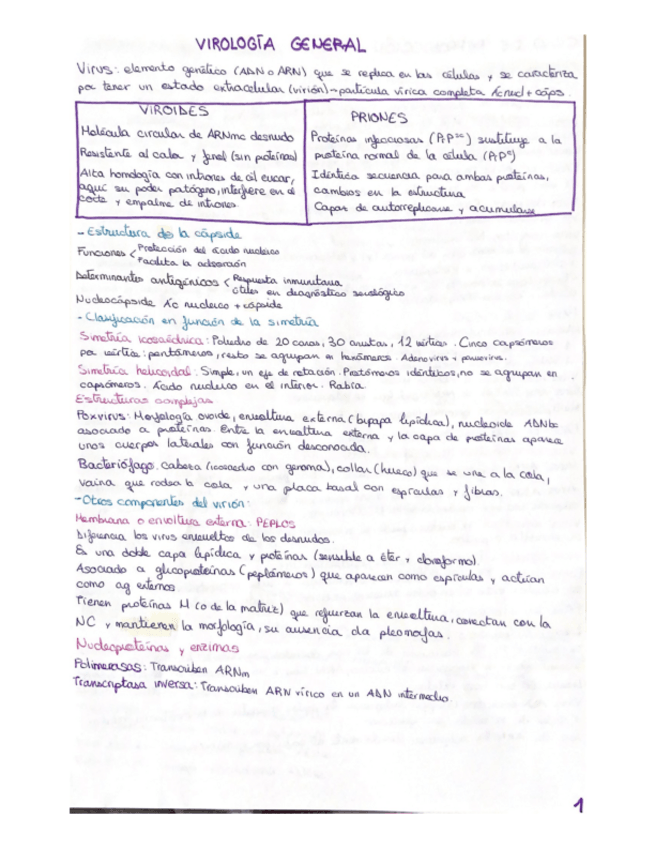 VIROLOGÍA GENERAL
Virus: elemento genético (ADN o ARN) que se replica en las células y se caracteriza
por tener un estado extracelular (virión)→partícula vírica completa Ácnucl + cáps.
VIROIDES
Molécula circular de ARNmc desnudo
Resistente al calor y fenol (sin proteínas)
Alta homología con intrones de cél eucar,
aquí su poder patógeno, interfiere en el
corte y empalme de intrones
PRIONES
Proteínas infecciosas (PrPsc) sustituye a la
proteína normal de la célula (PrPc)
Idéntica secuencia para ambas proteínas,
cambios en la estructura
Capaz de autorreplicarse y acumularse
- Estructura de la cápside
Funciones < Protección del ácido nucleico
Facilita la adsorción
Determinantes antigénicos < Respuesta inmunitaria
Útiles en diagnóstico serológico
Nucleocápside Ác nucleico + cápside
- Clasificación en función de la simetría
Simetría icosaédrica: Poliedro de 20 caras, 30 aristas, 12 vértices. Cinco capsómeros
por vértice: pentámeros, resto se agrupan en hexámeros. Adenovirus y parvovirus.
Simetría helicoidal: Simple, un eje de rotación. Protómeros idénticos, no se agrupan en
capsómeros. Ácido nucleico en el interior. Rabia.
Estructuras complejas
Poxvirus: Morfología ovoide, envoltura externa (bicapa lipídica), nucleoide ADNbc
asociado a proteínas. Entre la envoltura externa y la capa de proteínas aparece
unos cuerpos laterales con función desconocida.
Bacteriófago. Cabeza (icosaedro con genoma), collar (hueco) que se une a la cola,
vaina que rodea la cola y una placa basal con espículas y fibras.
- Otros componentes del virión:
Membrana o envoltura externa: PEPLOS
Diferencia los virus envueltos de los desnudos.
Es una doble capa lipídica y proteínas (sensible a éter y cloroformo).
Asociado a glucoproteínas (peplómeros) que aparecen como espículas y actúan
como ag externos.
Tienen proteínas M (o de la matriz) que refuerzan la envoltura, conectan con la
NC y mantienen la morfología, su ausencia da pleomorfas.
Nucleoproteínas y enzimas
Polimerasas: Transcriben ARNm
Transcriptasa inversa: Transcriben ARN vírico en un ADN intermedio
1